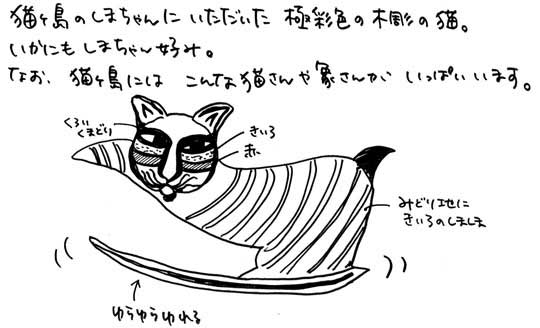 猫ヶ島のしまちゃんに いただいた 極彩色の木彫の猫。
いかにも しまちゃん好み。
なお、猫ヶ島には こんな猫さんや象さんが いっぱいいます。
くろい
くまどり
きいろ
赤
みどり地に
きいろのしましま
ゆらゆらゆれる